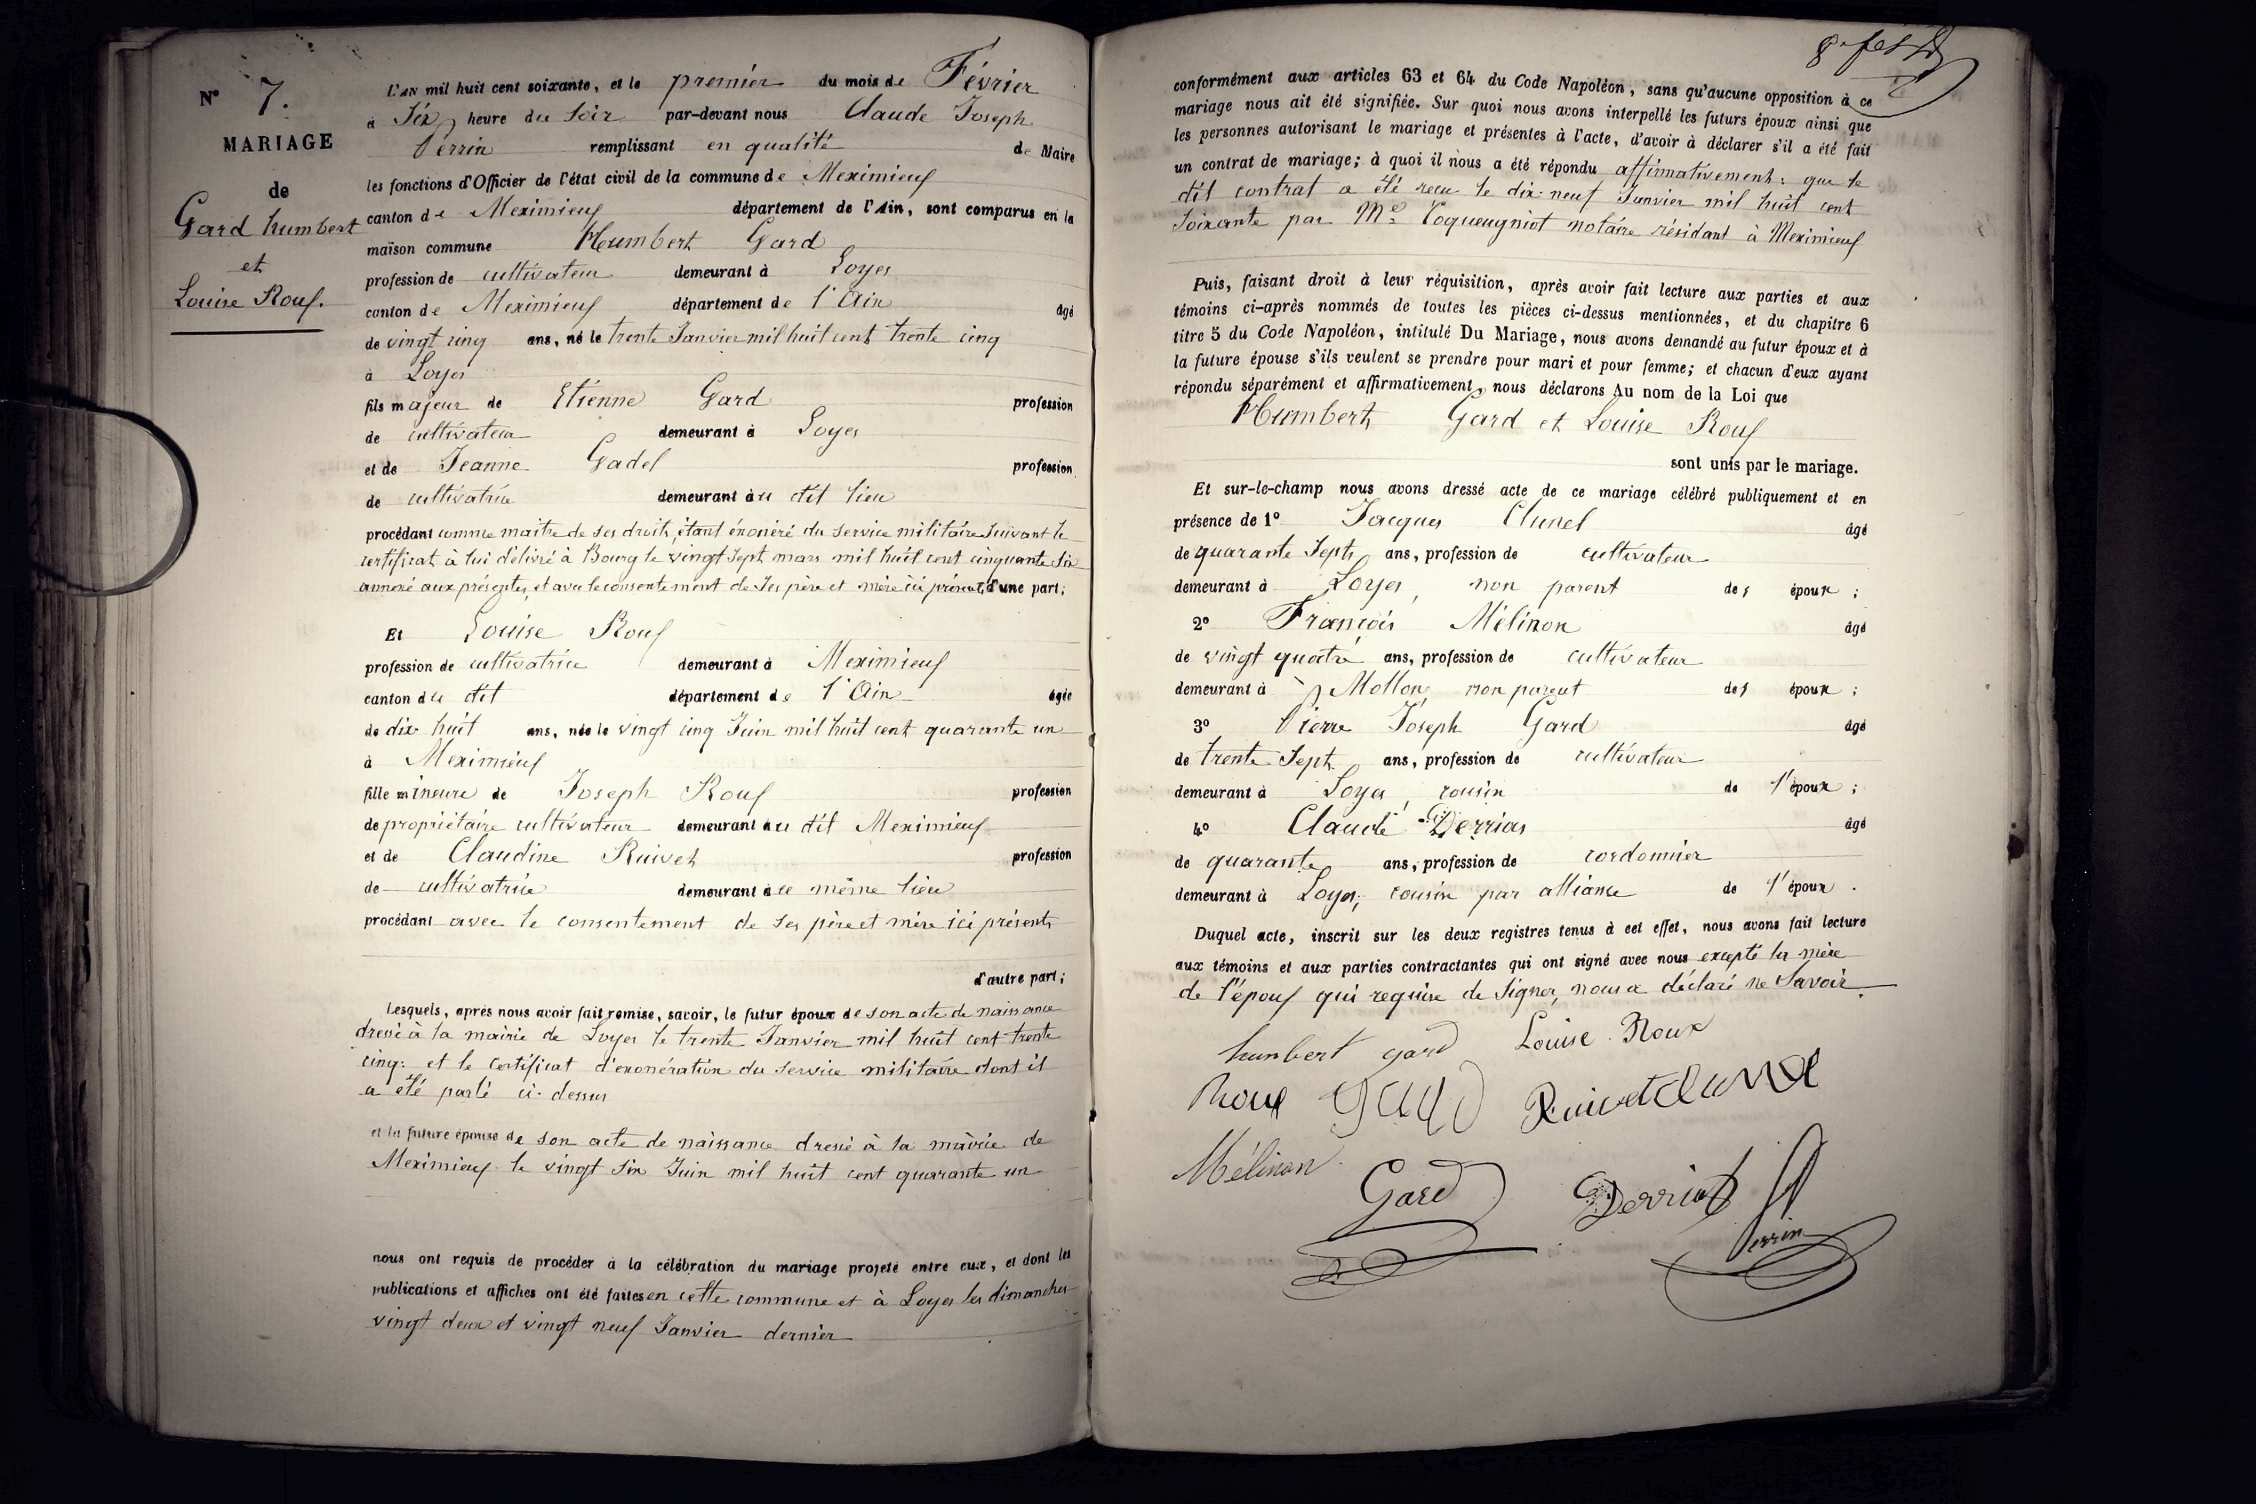 N° 7.
MARIAGE
de
Gard humbert
et
Louise Roux.
L'AN mil huit cent soixante, et le premier du mois de Février
à Six heure du Soir par-devant nous Claude Joseph
Perrin remplissant en qualité de Maire
les fonctions d'Officier de l'état civil de la commune de Meximieux
canton de Meximieux département de l'Ain, sont comparus en la
maison commune Humbert Gard
profession de cultivateur demeurant à Loyes
canton de Meximieux département de l'Ain âgé
de vingt cinq ans, né le trente Janvier mil huit cent trente cinq
à Loyes
fils majeur de Etienne Gard profession
de cultivateur demeurant à Loyes
et de Jeanne Gadel profession
de cultivatrice demeurant au dit lieu
procédant comme maitre de ses droits, étant éxonéré du service militaire suivant le
certificat à lui délivré à Bourg le vingt sept mars mil huit cent cinquante six
annexé aux présentes, et avec le consentement de ses père et mère ici présents, d'une part;
Et Louise Roux
profession de cultivatrice demeurant à Meximieux
canton du dit département de l'Ain âgée
de dix huit ans, née le vingt cinq Juin mil huit cent quarante un
à Meximieux
fille mineure de Joseph Roux profession
de propriétaire cultivateur demeurant au dit Meximieux
et de Claudine Ruivet profession
de cultivatrice demeurant à ce même lieu
procédant avec le consentement de ses père et mère ici présents
d'autre part;
Lesquels, après nous avoir fait remise, savoir, le futur époux de son acte de naissance
dressé à la mairie de Loyes le trente Janvier mil huit cent trente
cinq: et le certificat d'exonération du service militaire dont il
a été parlé ci-dessus
et la future épouse de son acte de naissance dressé à la mairie de
Meximieux le vingt six Juin mil huit cent quarante un
nous ont requis de procéder à la célébration du mariage projeté entre eux, et dont les
publications et affiches ont été faites en cette commune et à Loyes les dimanches
vingt deux et vingt neuf Janvier dernier
conformément aux articles 63 et 64 du Code Napoléon, sans qu'aucune opposition à ce
mariage nous ait été signifiée. Sur quoi nous avons interpellé les futurs époux ainsi que
les personnes autorisant le mariage et présentes à l'acte, d'avoir à déclarer s'il a été fait
un contrat de mariage; à quoi il nous a été répondu affirmativement: que le
dit contrat a été recu le dix-neuf Janvier mil huit cent
soixante par Me Voqueugniot notaire résidant à Meximieux
Puis, faisant droit à leur réquisition, après avoir fait lecture aux parties et aux
témoins ci-après nommés de toutes les pièces ci-dessus mentionnées, et du chapitre 6
titre 5 du Code Napoléon, intitulé Du Mariage, nous avons demandé au futur époux et à
la future épouse s'ils veulent se prendre pour mari et pour femme; et chacun d'eux ayant
répondu séparément et affirmativement, nous déclarons Au nom de la Loi que
Humbert Gard et Louise Roux
sont unis par le mariage.
Et sur-le-champ nous avons dressé acte de ce mariage célébré publiquement et en
présence de 1° Jacques Clunel âgé
de quarante sept ans, profession de cultivateur
demeurant à Loyes, non parent des époux;
2° François Mélinon âgé
de vingt quatre ans, profession de cultivateur
demeurant à Mollon, non parent des époux;
3° Pierre Joseph Gard âgé
de trente sept ans, profession de cultivateur
demeurant à Loyes, cousin de l'époux;
4° Claude Derrias âgé
de quarante ans, profession de cordonnier
demeurant à Loyes, cousin par alliance de l'époux.
Duquel acte, inscrit sur les deux registres tenus à cet effet, nous avons fait lecture
aux témoins et aux parties contractantes qui ont signé avec nous excepté la mère
de l'époux qui requise de signer, nous a déclaré ne savoir.
humbert gard Louise Roux
Roux gard Ruivet clunel
Mélinon
Gard Derrias
Perrin